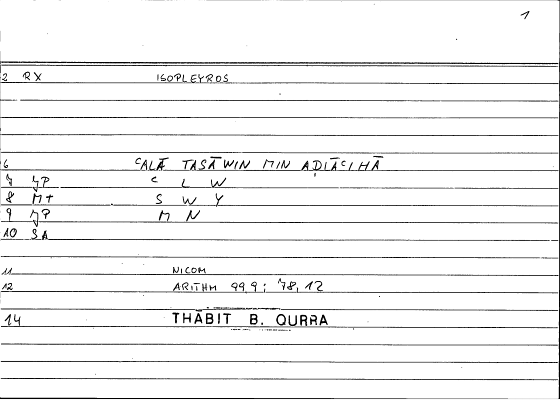 1
2 RX ISOPLEYROS
6 ʿALĀ TASĀWIN MIN AḌLĀʿIHĀ
7 JP ʿ L W
8 M+ S W Y
9 JP M N
10 SA
11 NICOM
12 ARITHM 99,9 : 78,12
14 THĀBIT B. QURRA